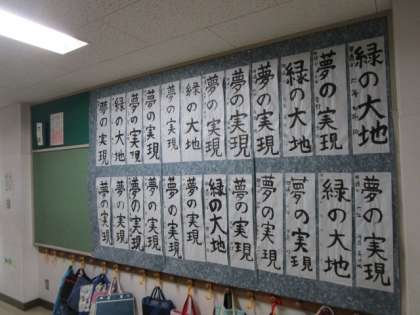 緑の大地
夢の実現
緑の大地
夢の実現
夢の実現
夢の実現
緑の大地
夢の実現
夢の実現
夢の実現
緑の大地
夢の実現
夢の実現
緑の大地
夢の実現
夢の実現
夢の実現
緑の大地
夢の実現
夢の実現
夢の実現
夢の実現
夢の実現
夢の実現